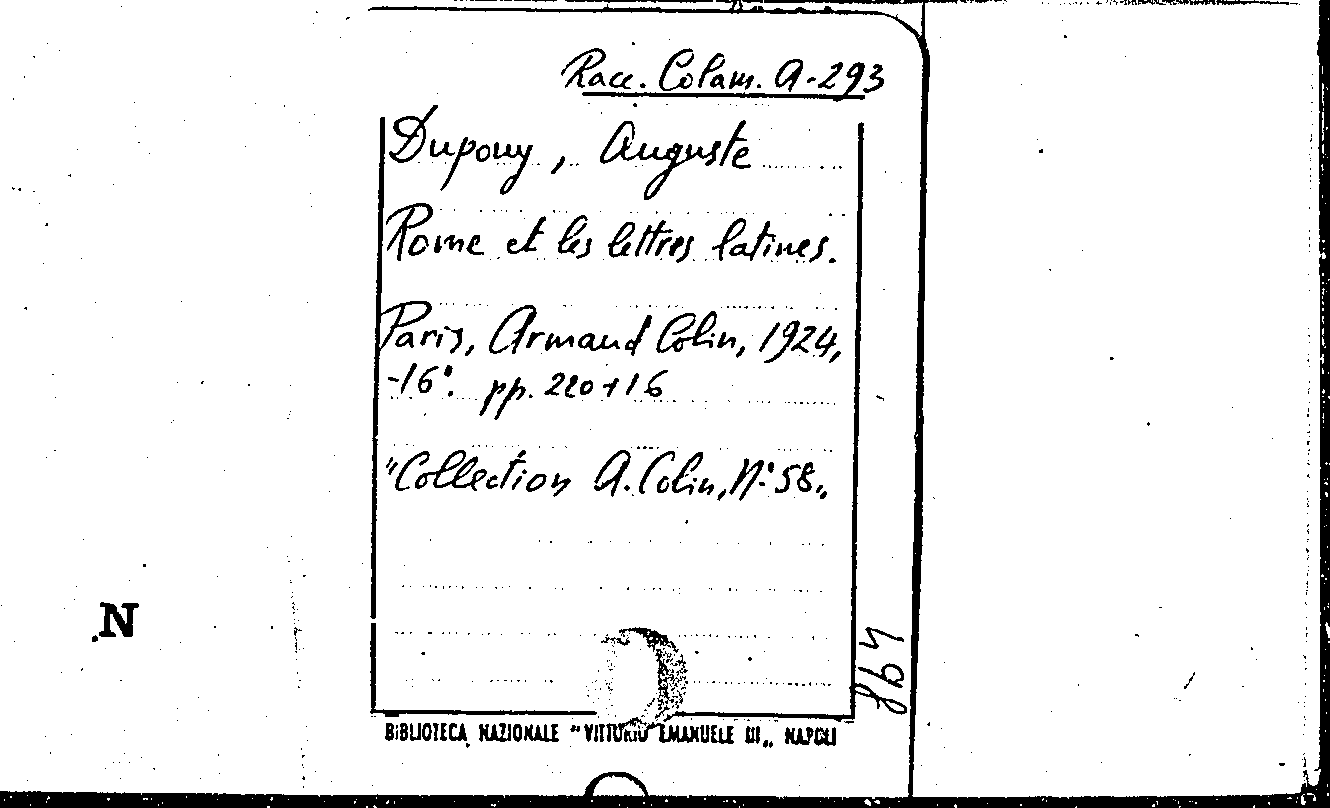 Racc. Colam. A-293
Dupouy, Auguste
Rome et les lettres latines.
Paris, Armand Colin, 1924,
-16°. pp. 220+16
"Collection A. Colin, N° 58„
N
BIBLIOTECA NAZIONALE "VITTORIO EMANUELE III„ NAPOLI